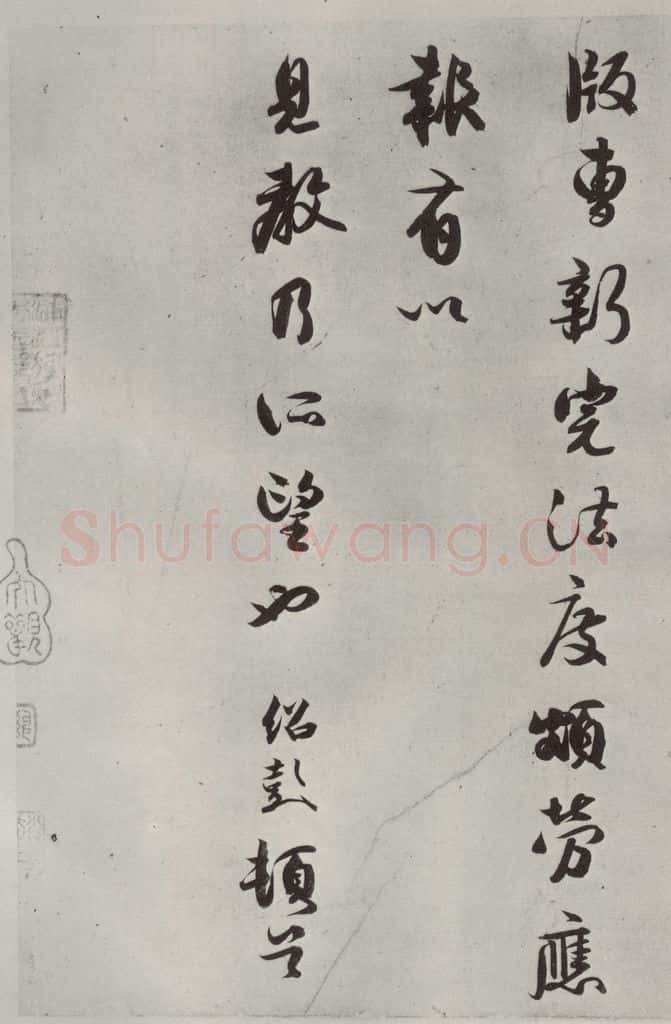 版曹新完法度頗勞應
報有以
見教乃所望也 紹彭頓首
Shufawang.CN